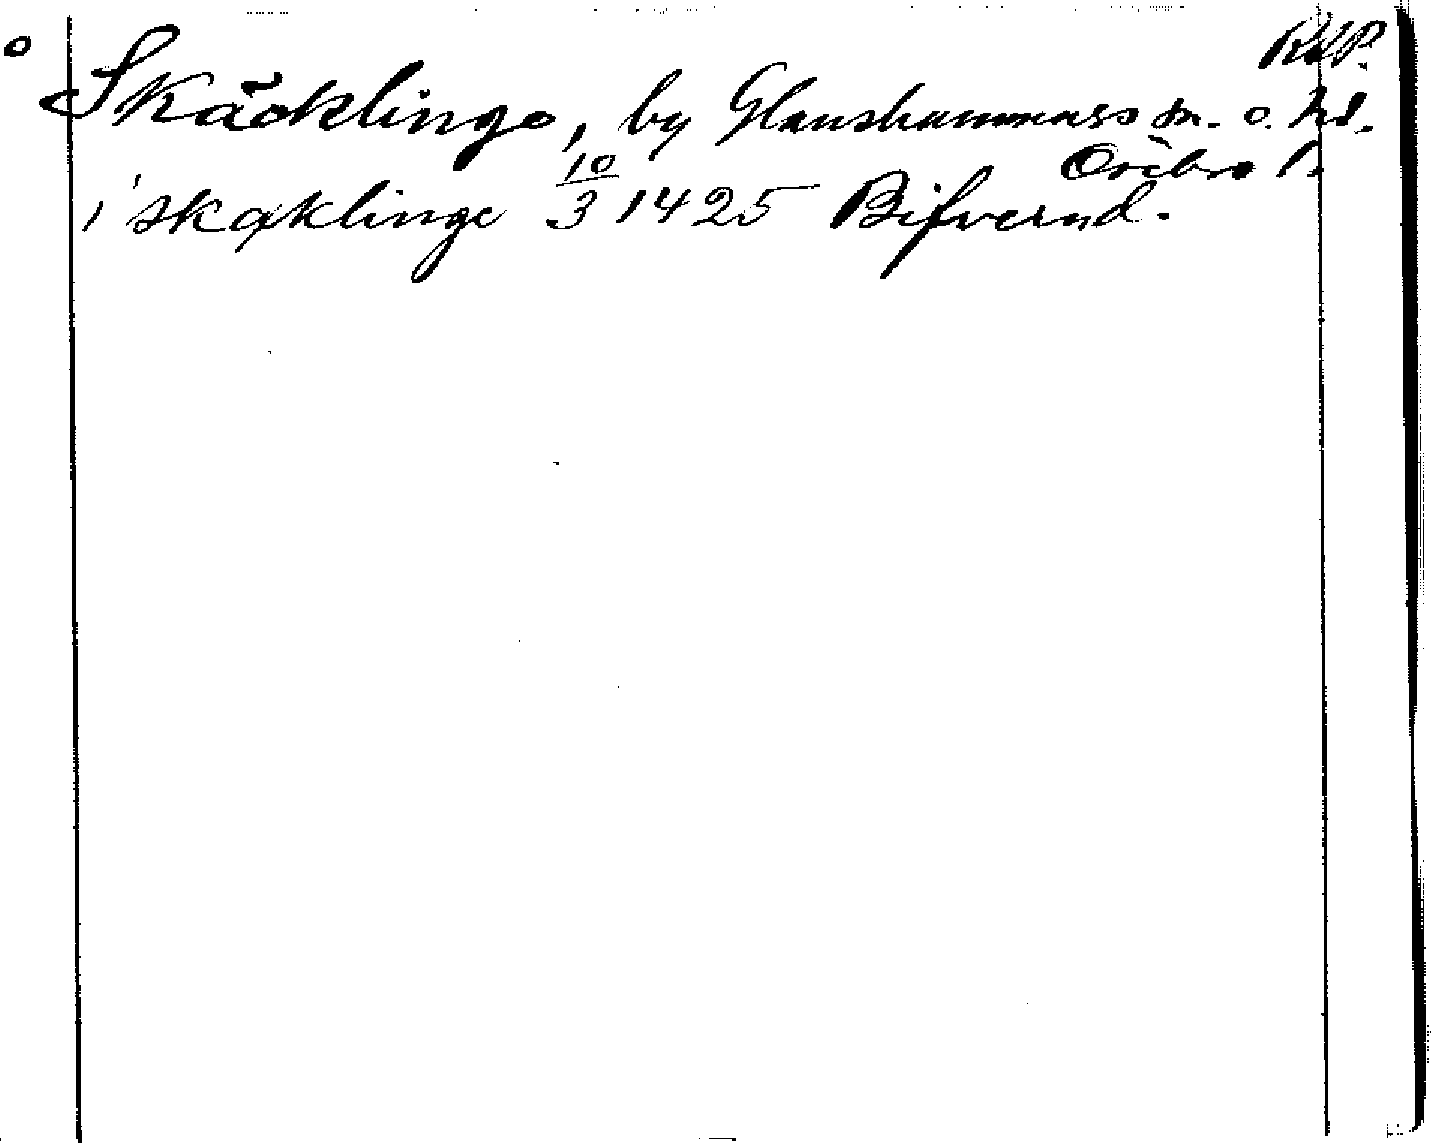 RAP.
Skäcklinge, by Glanshammars sn. o. hd.
Örebro l.
i skæklinge 10/3 1425 Bifvernd.